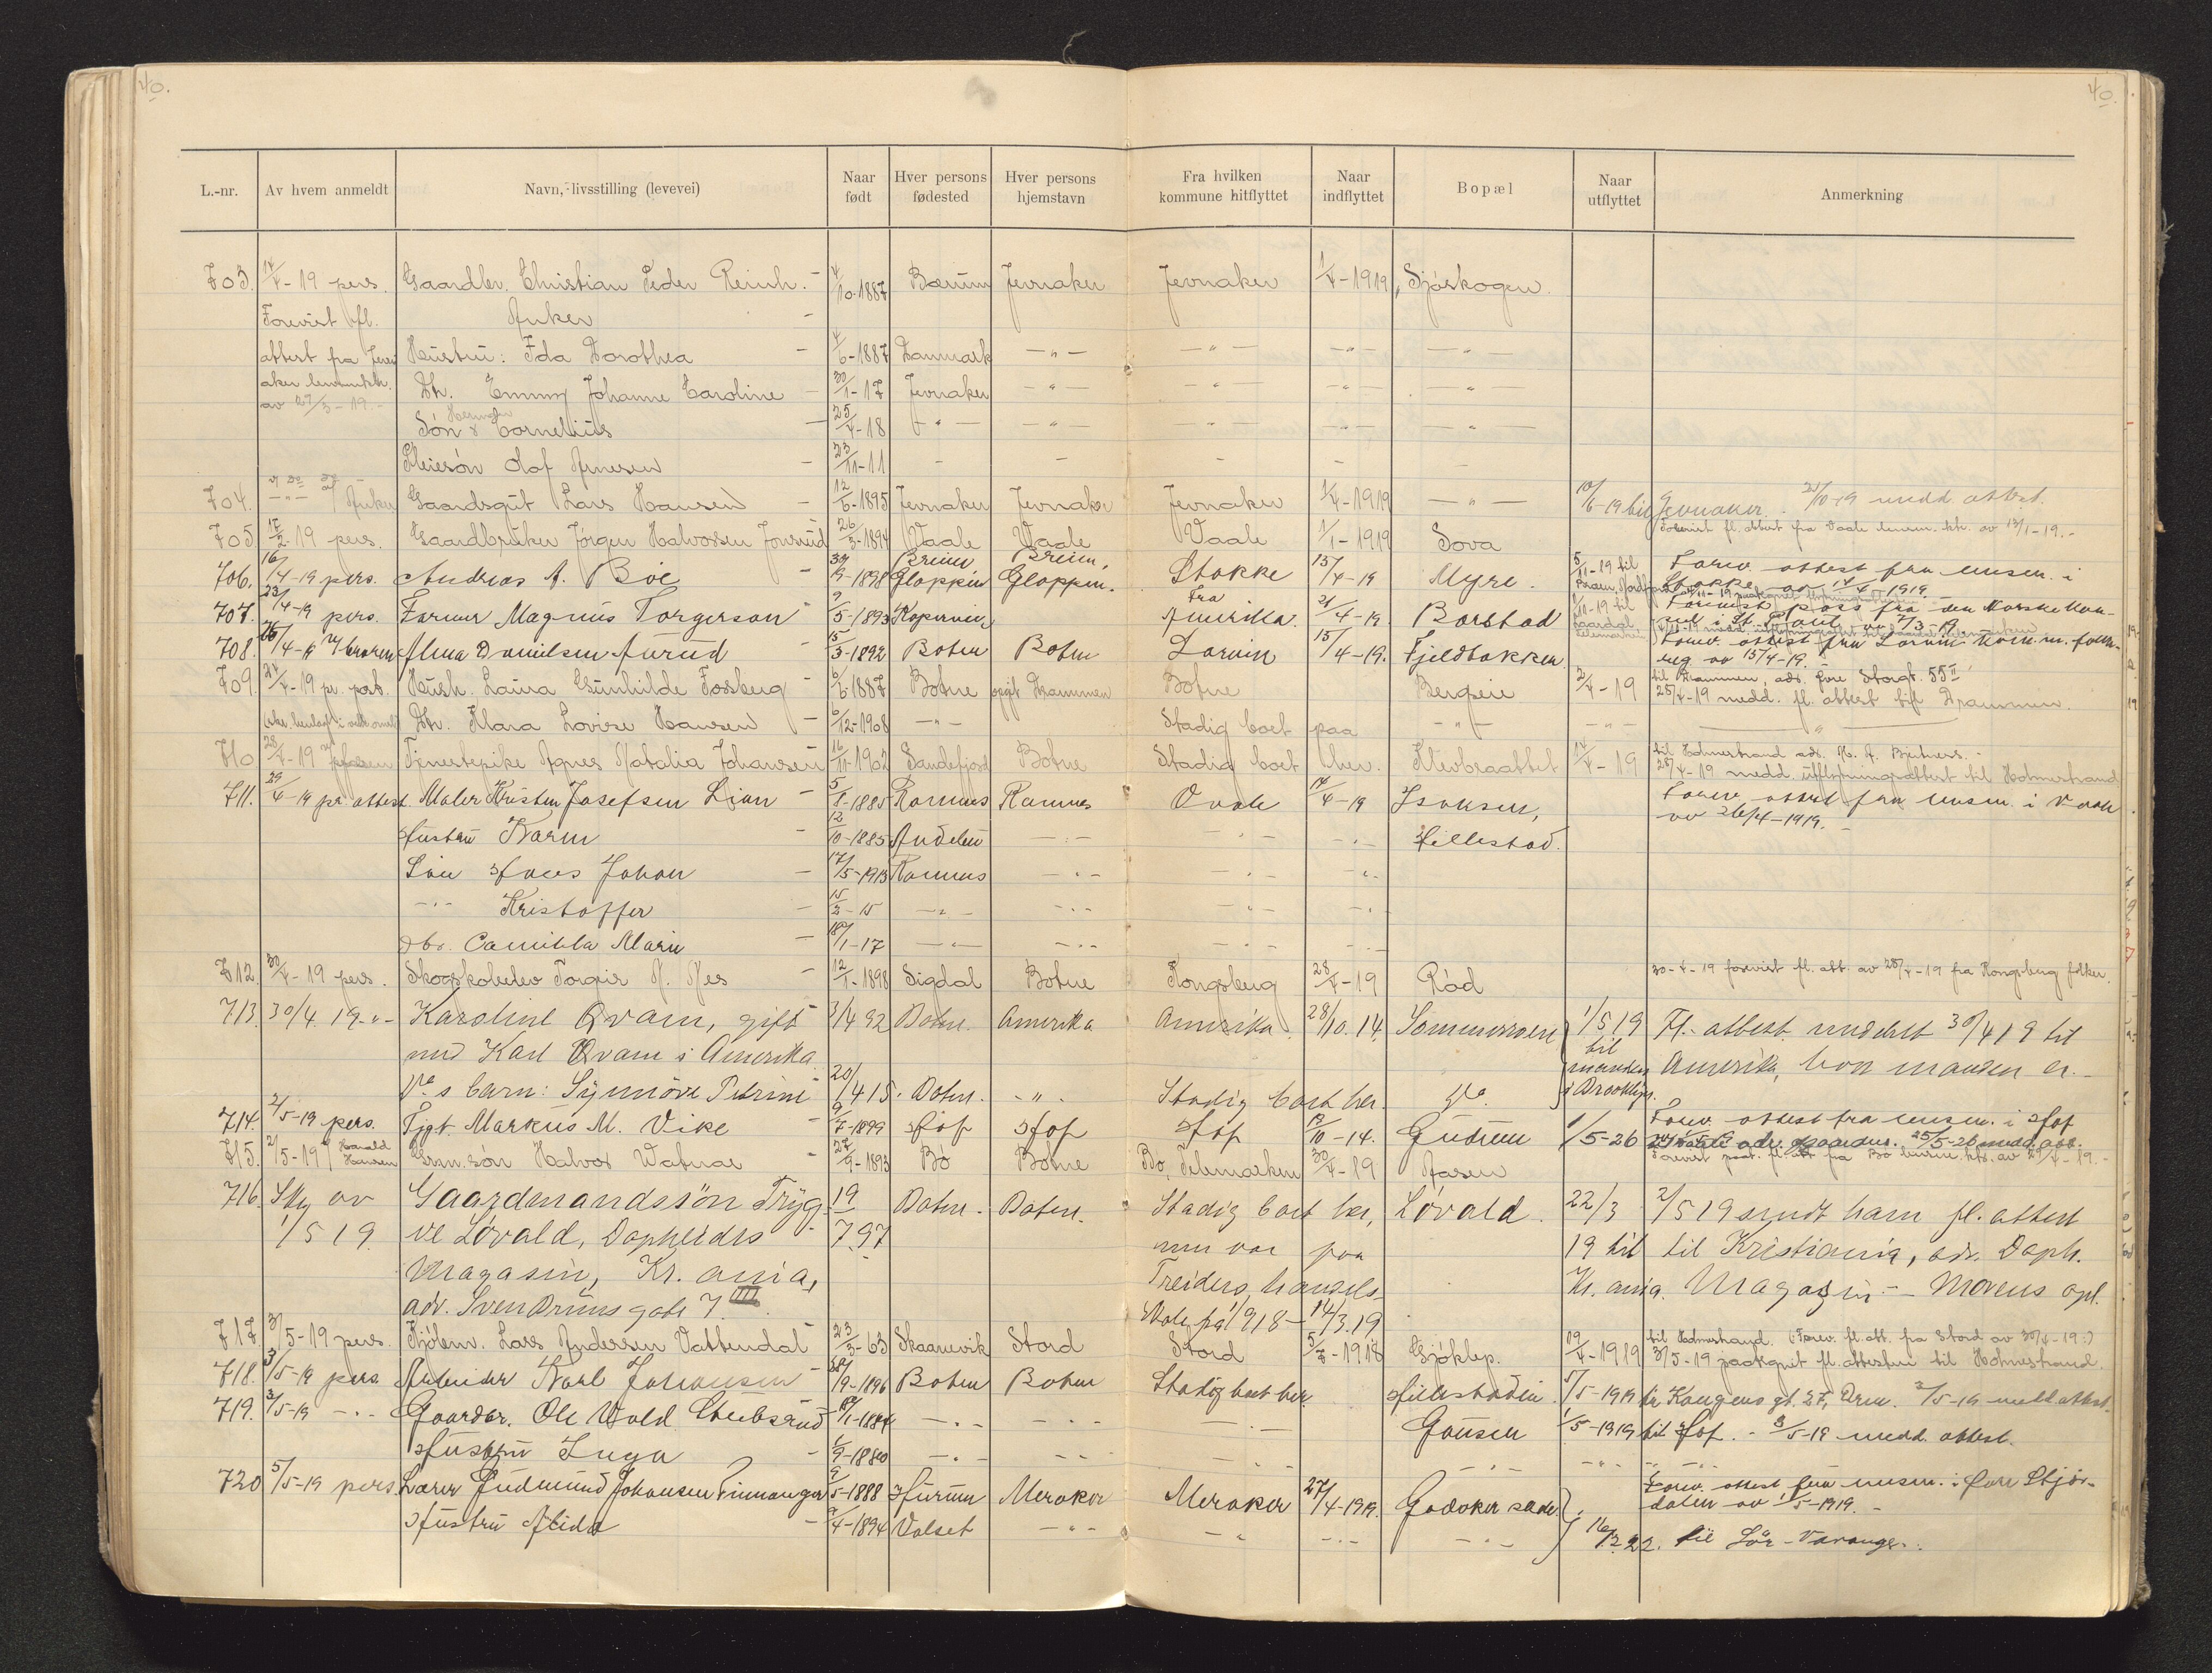 40.
40.
L.-nr. Av hvem anmeldt Navn, livsstilling (levevei) Naar født Hver persons fødested Hver persons hjemstavn Fra hvilken kommune hitflyttet Naar indflyttet Bopæl Naar utflyttet Anmerkning
703. 14/4-19 pers. Gaardbr. Christian Peder Reinh. - 4/10-1887 Bærum Jevnaker Jevnaker 1/4-1919 Sjøskogen.
Forevist fl. Anker -
attest fra Jevn Hustru: Ida Dorothea - 4/6-1887 Danmark -"- -"- -"- -"-
aker Dtr. Emmy Johanne Caroline - 30/1-17 Jevnaker -"- -"- -"- -"-
av 27/3-19.- Søn Cornelius - 25/4-18 -"- -"- -"- -"- -"-
Pleiesøn Olof Arnesen - 23/11-11 - - - - -
704. Anker Gaardsgut Lars Hansen - 12/6-1895 Jevnaker Jevnaker Jevnaker 1/4-1919 -"- 10/6-19 til Jevnaker. 21/10-19 medd. attest.
705. 17/2-19 pers. Gaardbruker Jørgen Halvorsen Jonsrud 26/3-1894 Vaale Vaale Vaale 1/1-1919 Sova Forevist fl. attest fra Vaale lensm. ktr. av 13/1-19.-
706. 16/4-19 pers. Andreas A. Bøe - 1898 Breim, Gloppen Breim, Gloppen. Stokke 15/4-19 Myre. 5/11-19 til Forev. attest fra lensm. i
Stokke av 14/4 1919.
707. 23/4-19 pers. Farmer Magnus Torgersen 9/5-1893 Kopervik fra Amerika. 21/4-19 Borstad Forevist pass fra den Norske Kon-
sul i St. Paul av 7/3-19.
708. 26/4-19 v/ broren Alma Danielsen Aurud 15/3-1892 Botne Botne Larvik 15/4-19. Fjeldbakken Forev. attest fra Larvik Kom. m. folke-
reg av 15/4-19.
709. 24/4-19 pr. post. Hush. Laura Gunhilde Fosberg - 6/6-1887 Botne opgit Drammen Botne Bergseie 2/4-19 til Drammen, adr. Øvre Storgt. 55 II
25/4-19 medd. fl. attest til Drammen.
Dtr. Klara Lovise Hansen - 6/12-1908 -"- Stadig boet paa -"- -"- -"-
710 28/4-19 Tjenestepike Agnes Natalia Johansen 16/11-1902 Sandefjord Botne Stadig boet her. Klevbraattet 14/4-19 til Holmestrand adr.
28/4-19 medd. utflytningsattest til Holmestrand
711. 29/4-19 pr. attest. Maler Kristen Josefsen Lian - 5/8-1885 Ramnes Ramnes Vaale 14/4-19 Isaksen, Forev. attest fra lensm. i Vaale
av 26/4-1919.-
Hustru Karen - 12/10-1885 Andebu -"- -"- -"- Hillestad.
Søn Hans Johan - 17/5-1913 Ramnes -"- -"- -"-
-"- Kristoffer - 15/2-15 -"- -"- -"- -"-
dtr. Camilla Marie - 18/1-17 -"- -"- -"- -"-
712. 30/4-19 pers. Skogskoleelev Torgeir N. Nes - 12/1-1898 Sigdal Botne Kongsberg 28/4-19 Rød 30-4-19 forevist fl. att. av 28/4-19 fra Kongsberg folker.
713. 30/4 19 -"- Karoline Qvam, gift 3/4 92 Botne. Amerika Amerika. 28/10.14. Sommeroen 1/5 19 Fl.- attest meddelt 30/4 19 til
med Karl Qvam i Amerika. til manden i Brooklyn. Amerika, hvor manden er.-
Ds barn: Synnöve Petrine 20/4 15. Botne. -"- Stadig boet her. Do.
714. 2/5-19 pers. Tjgt. Markus M. Vike 9/7-1899 Hof Hof Hof 12/10-14. Gudrun 1/5-26 Forev. attest fra lensm. i Hof
25/5-26 medd. att.
715. 2/5-19 v/ Harald Hansen Grm.søn Halvor Watnar - 27/9-1893 Bø Botne Bø, Telemarken 30/4-19 Aasen Forevist fl. att fra Bø lensm. ktr. av 29/4-19.-
716. Skr. av Gaardmandssön Tryg- 19 Botne. Botne. Stadig boet her, Lövald. 22/3 2/5 19 sendt ham fl. attest
1/5 19. ve Lövald, Dapheides 7.97 men var paa 19 til til Kristiania, adr. Daph.
Magasin, Kr.ania, Treiders handels- Kr.ania. Magasin.-
adr. Sven Bruns gate 7 III. skole fra 1/9 18 - 14/3.19
717. 3/5-19 pers. Kjølem. Lars Andersen Vattendal 23/3-63 Skaanevik Stord Stord 5/8-1918 Gjøklep. 19/4-1919 til Holmestrand. (Forev. fl. att. fra Stord av 30/4-19.)
3/5-19 paategnet fl. attesten til Holmestrand.
718. 3/5-19 pers. Arbeider Karl Johansen 1896 Botne Botne Stadig boet her. Hillestaden 5/5-1919 til Kongens gt. 27, Drm. 3/5-19 medd attest.
719. 3/5-19 -"- Gaardbr. Ole Wold Stubsrud 1/1884 -"- -"- -"- Gausen 1/5-1919 til Hof.- 3/5-19 medd. attest.
Hustru Inga - 6/9-1880 -"- -"- -"- -"- -"- -"-
720 5/5-19 pers. Lærer Gudmund Johansen Finnanger 9/5-1888 Hurum Meraker Meraker 27/4-1919. Gadaker skole. Forev. attest fra lensm. i Øvre Stjør-
dalen av 1/5-1919.-
Hustru Alida - 7/4-1894 Valset -"- -"- -"- -"- 16/12 22. til Sör-Varanger.